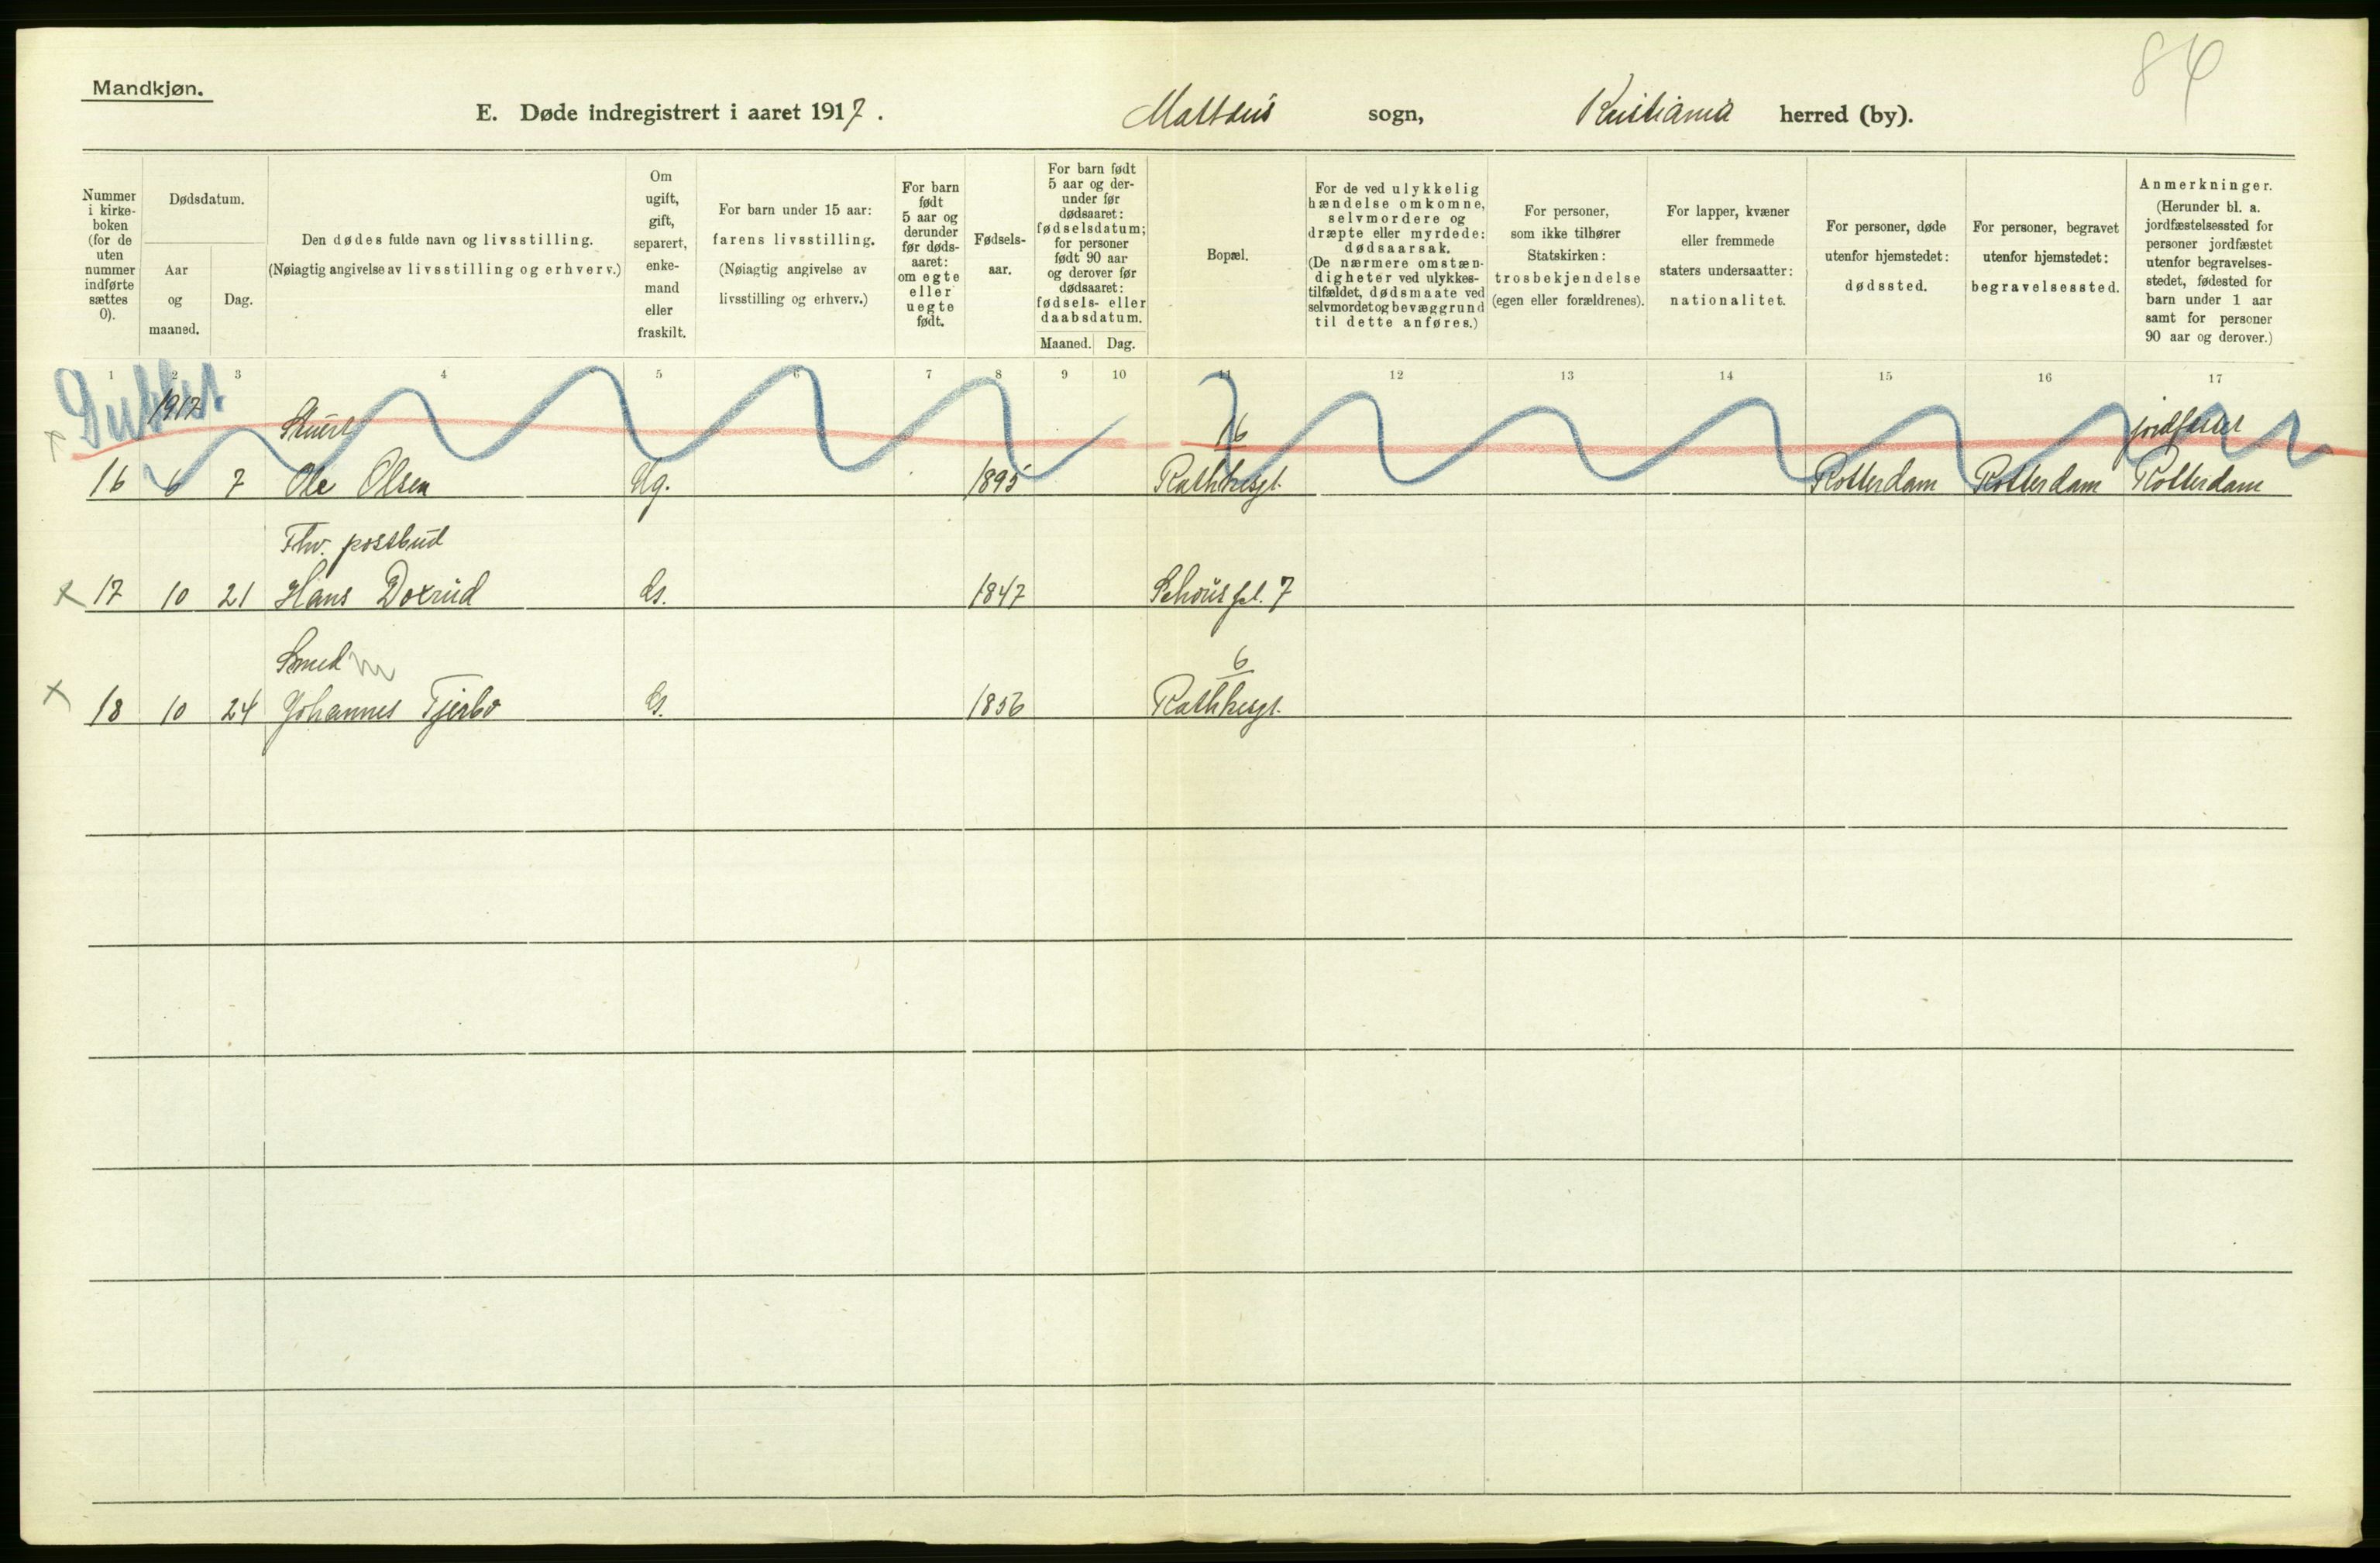 84
Mandkjøn.
E. Døde indregistrert i aaret 1917.
Mattæus sogn, Kristiania herred (by).
Nummer i kirke-boken (for de uten nummer indførte sættes 0).
Dødsdatum.
Aar og maaned.
Dag.
Den dødes fulde navn og livsstilling. (Nøiagtig angivelse av livsstilling og erhverv.)
Om ugift, gift, separert, enke-mand eller fraskilt.
For barn under 15 aar: farens livsstilling. (Nøiagtig angivelse av livsstilling og erhverv.)
For barn født 5 aar og derunder før døds-aaret: om egte eller uegte født.
Fødsels-aar.
For barn født 5 aar og der-under før dødsaaret: fødselsdatum; for personer født 90 aar og derover før dødsaaret: fødsels- eller daabsdatum.
Maaned. Dag.
Bopæl.
For de ved ulykkelig hændelse omkomne, selvmordere og dræpte eller myrdede: dødsaarsak. (De nærmere omstæn-digheter ved ulykkes-tilfældet, dødsmaate ved selvmordet og bevæggrund til dette anføres.)
For personer, som ikke tilhører Statskirken: trosbekjendelse (egen eller forældrenes).
For lapper, kvæner eller fremmede staters undersaatter: nationalitet.
For personer, døde utenfor hjemstedet: dødssted.
For personer, begravet utenfor hjemstedet: begravelsessted.
Anmerkninger. (Herunder bl. a. jordfæstelsessted for personer jordfæstet utenfor begravelses-stedet, fødested for barn under 1 aar samt for personer 90 aar og derover.)
1 2 3 4 5 6 7 8 9 10 11 12 13 14 15 16 17
Dubbet
1917 Stuert 16 jordfæstet
16 6 7 Ole Olsen Ug. 1895 Rathkesgt. Rotterdam Rotterdam Rotterdam
Fhv. postbud
x 17 10 21 Hans Doxrud G. 1847 Schous pl. 7
Smed 6
x 18 10 24 Johannes Tjerbo G. 1856 Rathkesgt.